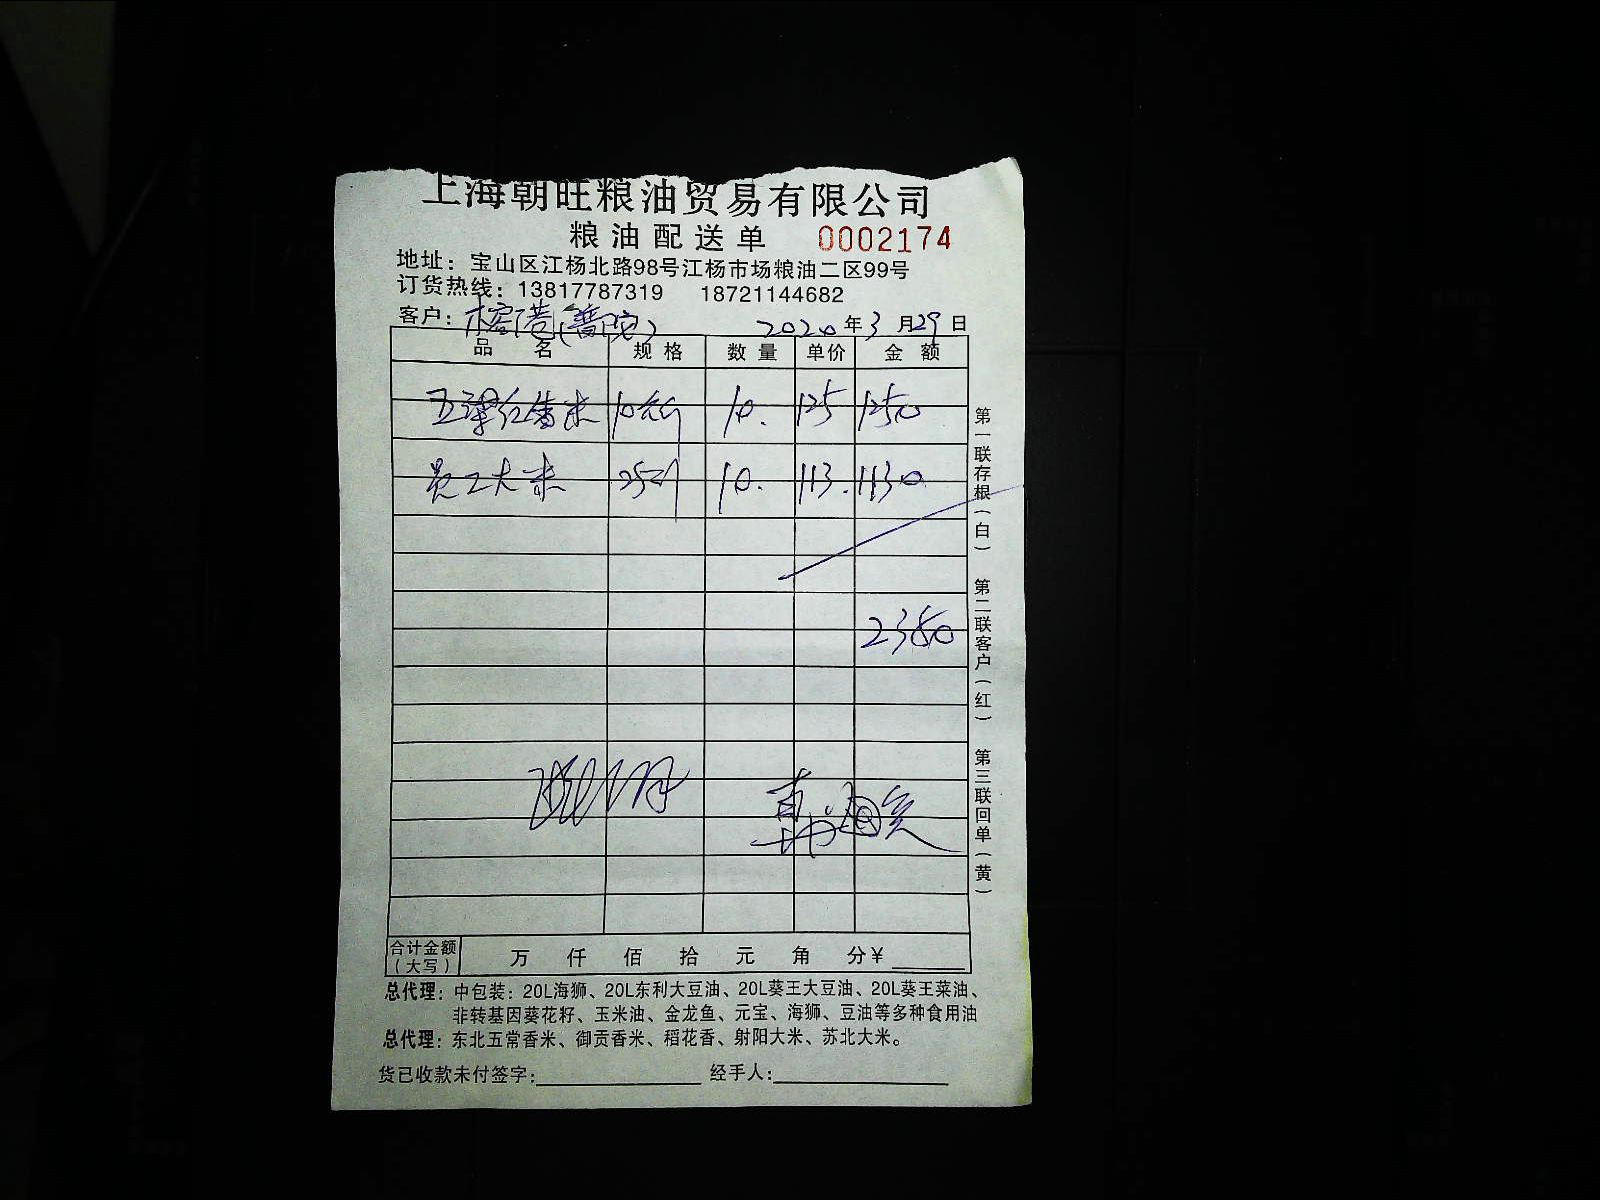 上海朝旺粮油贸易有限公司
粮油配送单 0002174
地址：宝山区江杨北路98号江杨市场粮油二区99号
订货热线：13817787319 18721144682
客户：榕港(普陀) 2020年3月29日
品名 规格 数量 单价 金额
10公斤 10. 125 1250
员工大米 25 10. 113. 1130
2380
第一联存根（白） 第二联客户（红） 第三联回单（黄）
合计金额（大写） 万 仟 佰 拾 元 角 分¥
总代理：中包装：20L海狮、20L东利大豆油、20L葵王大豆油、20L葵王菜油、
非转基因葵花籽、玉米油、金龙鱼、元宝、海狮、豆油等多种食用油
总代理：东北五常香米、御贡香米、稻花香、射阳大米、苏北大米。
货已收款未付签字： 经手人：